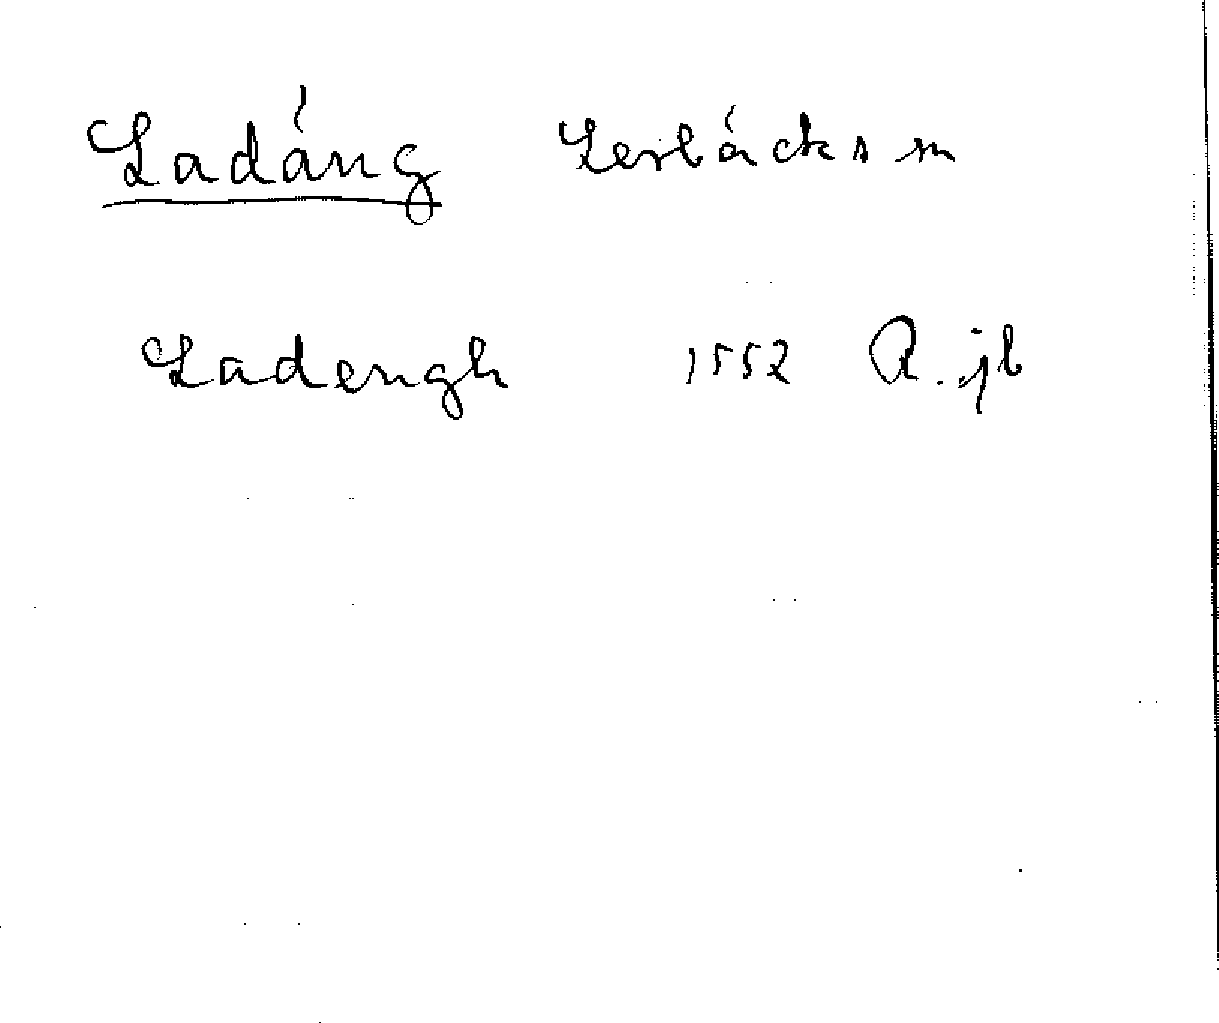 Ladáng Lerbácks sn
Ladengh 1552 R. jb